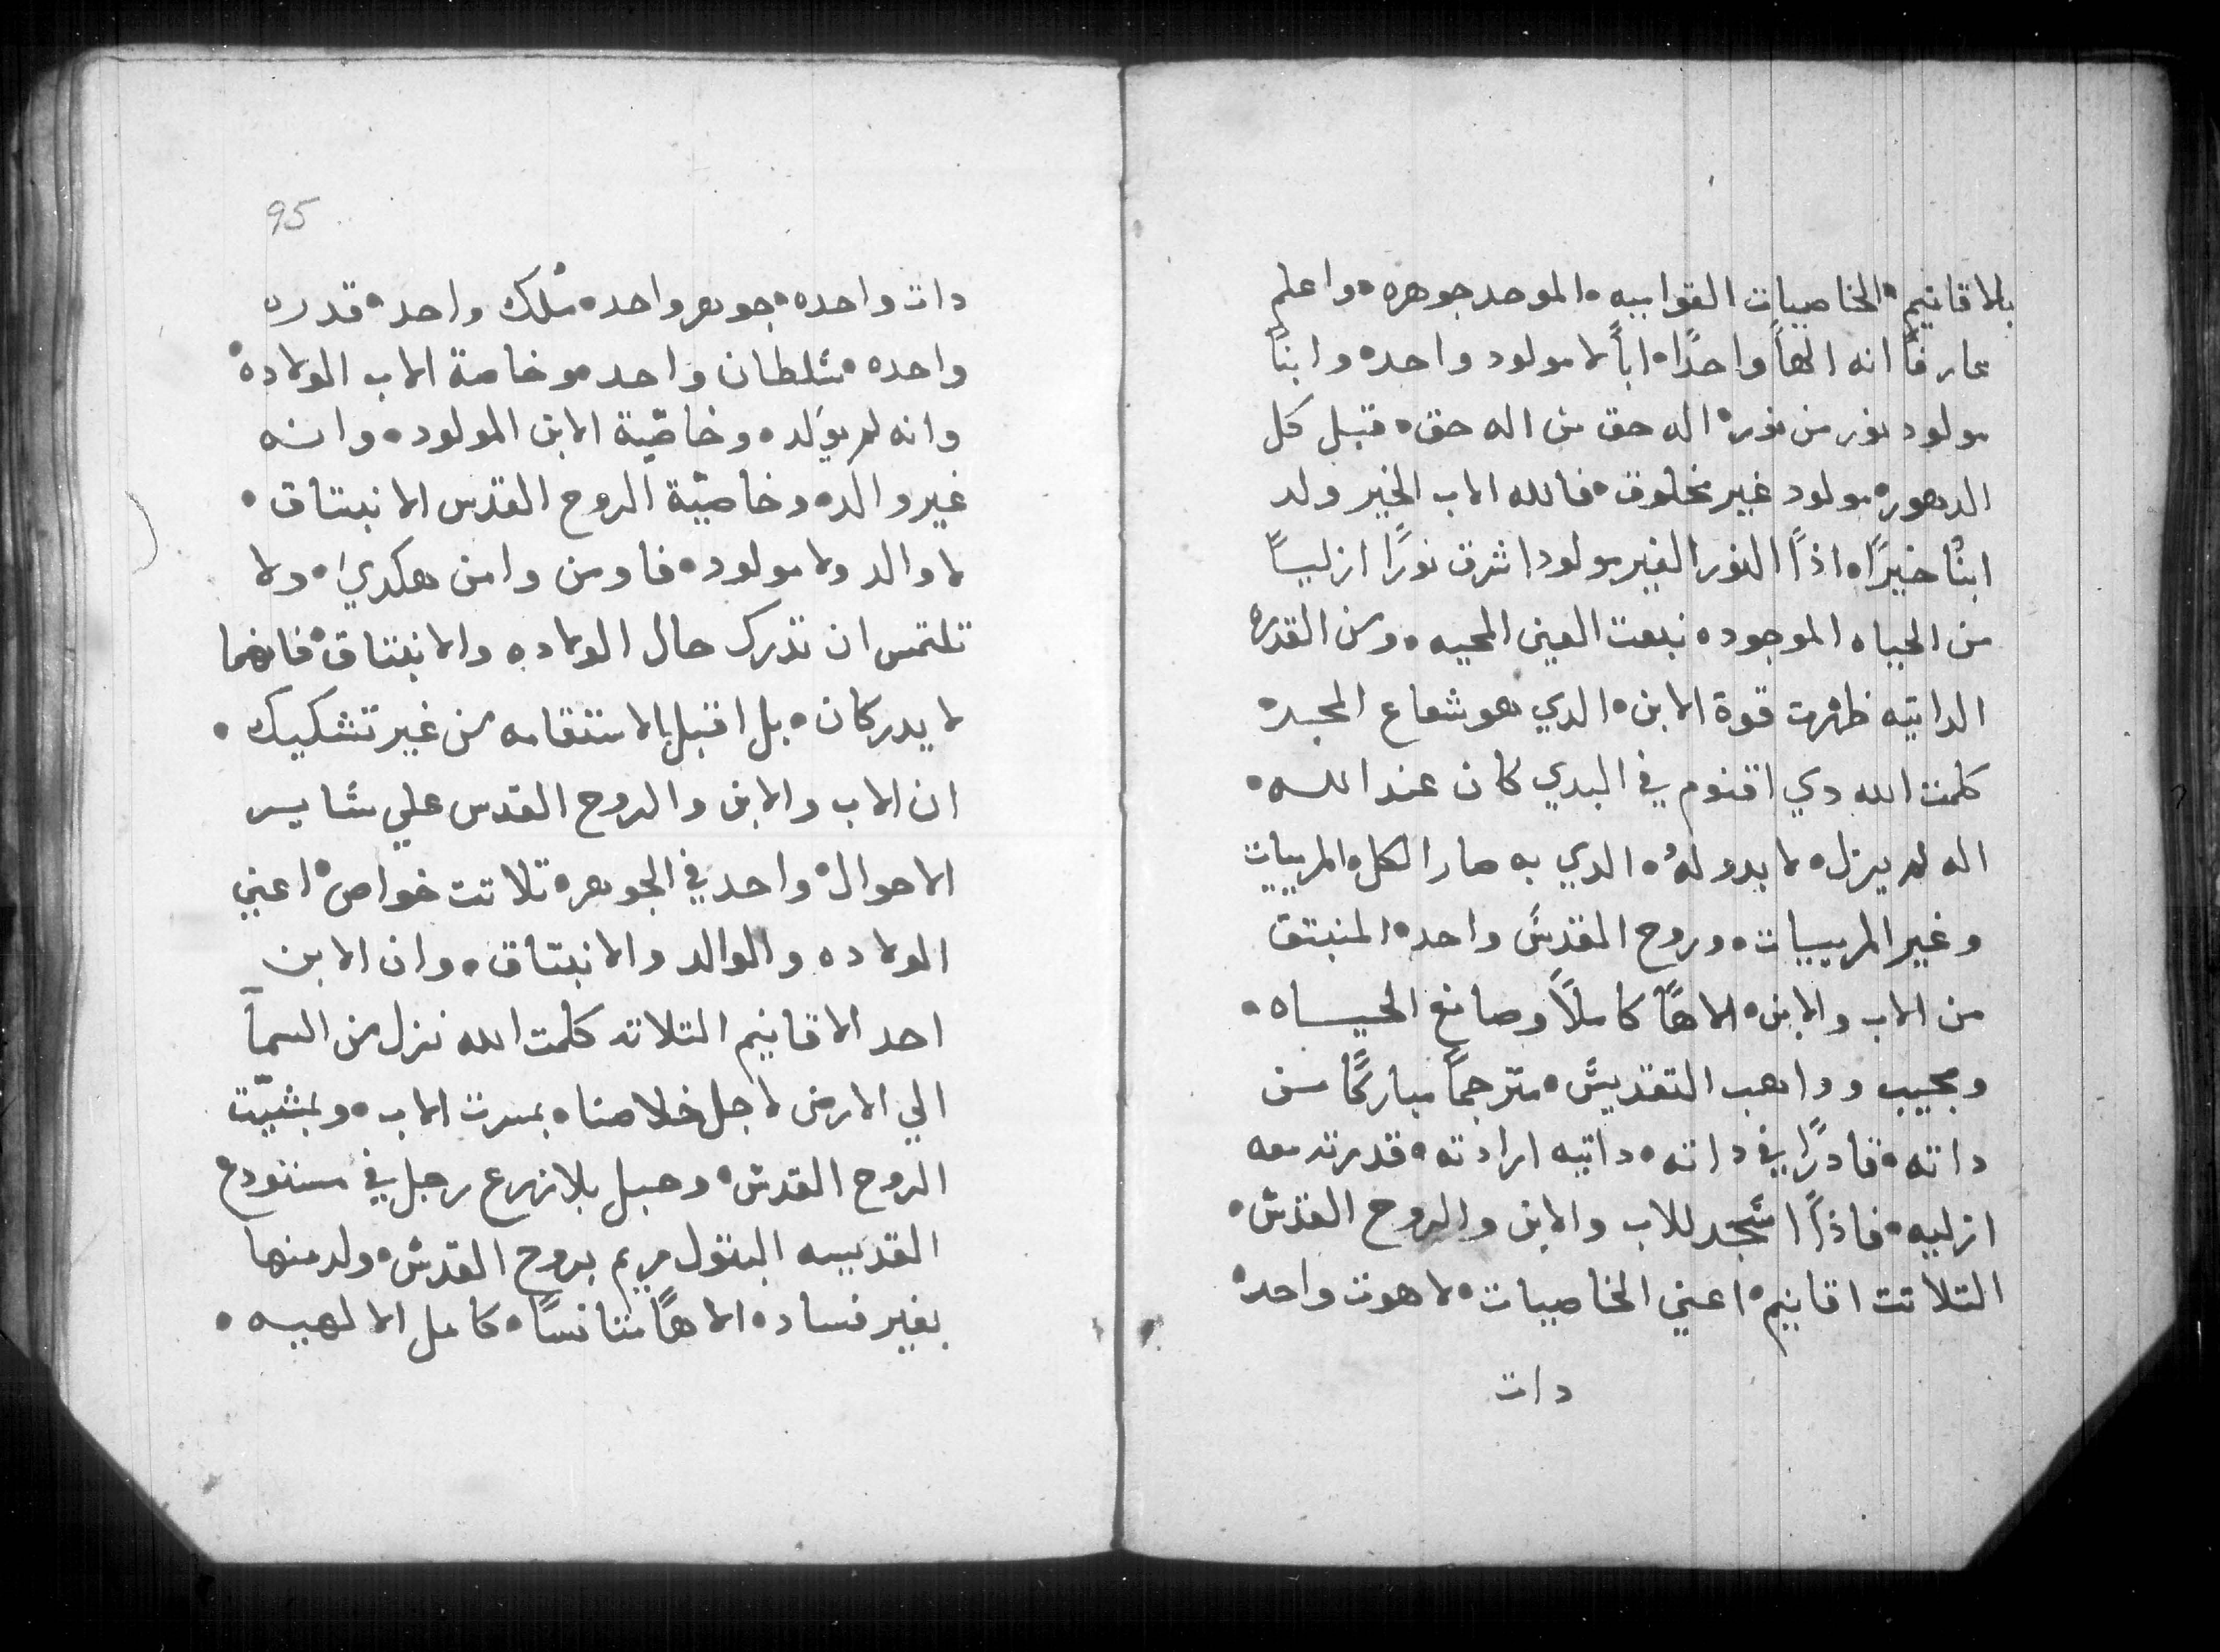 بالاقانيم• الخاصيات القواميه• الموحد جوهره• واعلم
عارفاً انه الهاً واحدًا• اباً لا مولود واحد• وابنًا
مولود نور من نور• اله حق من اله حق• قبل كل
الدهور• مولود غير مخلوق• فالله الاب الخير ولد
ابنًا خيرًا• اذاً النور الغير مولود اشرق نورًا ازليًا
من الحياه الموجوده نبعت العين المحييه• ومن القدره
الداتيه ظهرت قوة الابن• الدي هو شعاع المجد•
كلمت الله دي اقنوم في البدي كان عند الله•
اله لم يزل• لا بدو له• الدي به صار الكل• المرييات
وغير المرييات• وروح المقدس واحد• المنبتق
من الاب والابن• الاهًا كاملاً وصانع الحياه•
ومجيب وواهب التقديس• مترجماً مباركًا من
داته• قادرًا في داته• داتيه ارادته• قدرته معه
ازليه• فاذاً اسجد للاب والابن والروح القدس•
التلاتت اقانيم• اعني الخاصيات• لاهوت واحد•
دات
95
دات واحده• جوهر واحد• ملك واحد• قدره
واحده• سلطان واحد• وخاصة الاب الولاده•
وانه لم يولد• وخاصّية الابن المولود• وانه
غير والد• وخاصيّة الروح القدس الانبتاق•
لا والد ولا مولود• فاومن وامن هكدي• ولا
تلتمس ان تدرك حال الولاده والانبتاق• فانهما
لا يدركان• بل اقبل بالاستقامه من غير تشكيك•
ان الاب والابن والروح القدس علي ساير
الاحوال• واحد في الجوهر• تلاتت خواص• اعني
الولاده والوالد والانبتاق• وان الابن
احد الاقانيم التلاته كلمت الله نزل من السمآ
الي الارض لاجل خلاصنا• بمسرت الاب• وبمشيّت
الروح القدس• وحبل بلا زرع رجل في مستودع
القديسه البتول مريم بروح القدس• ولد منها
بغير فساد• الاهًا متانسًا• كامل الالهيه•